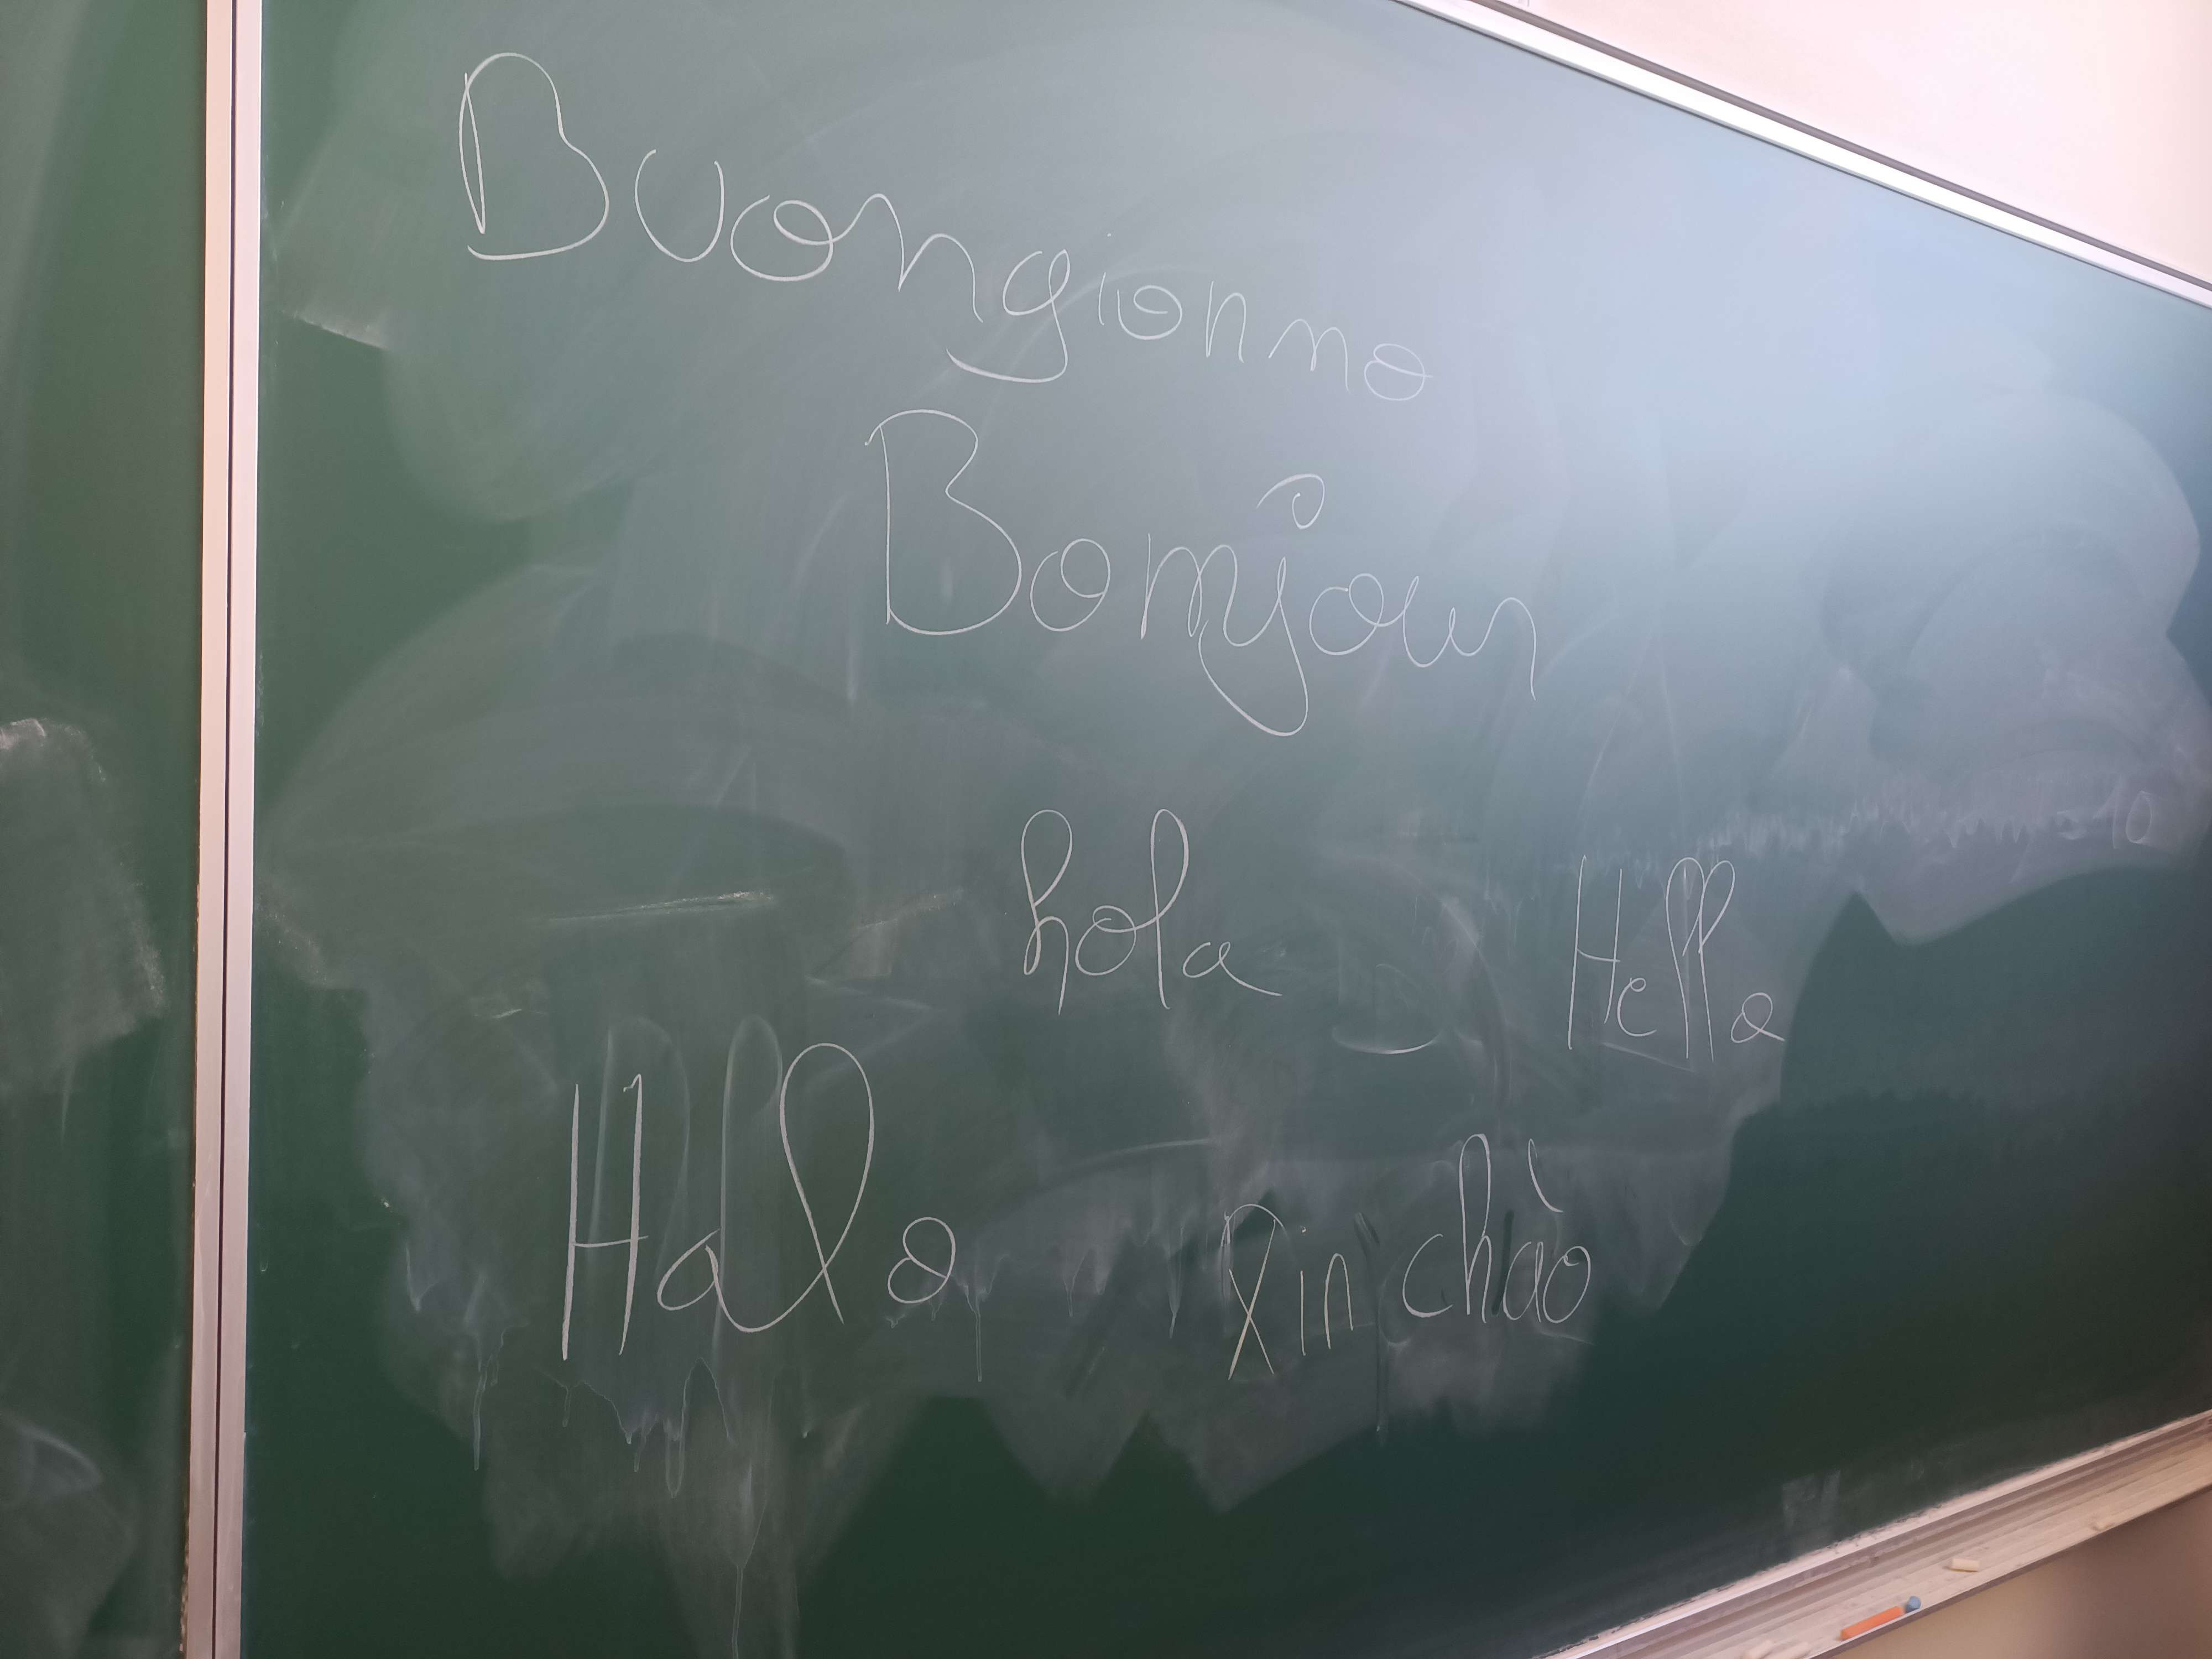 Buongiorno
Bonjour
hola Hello
Hallo Xin chào
=10